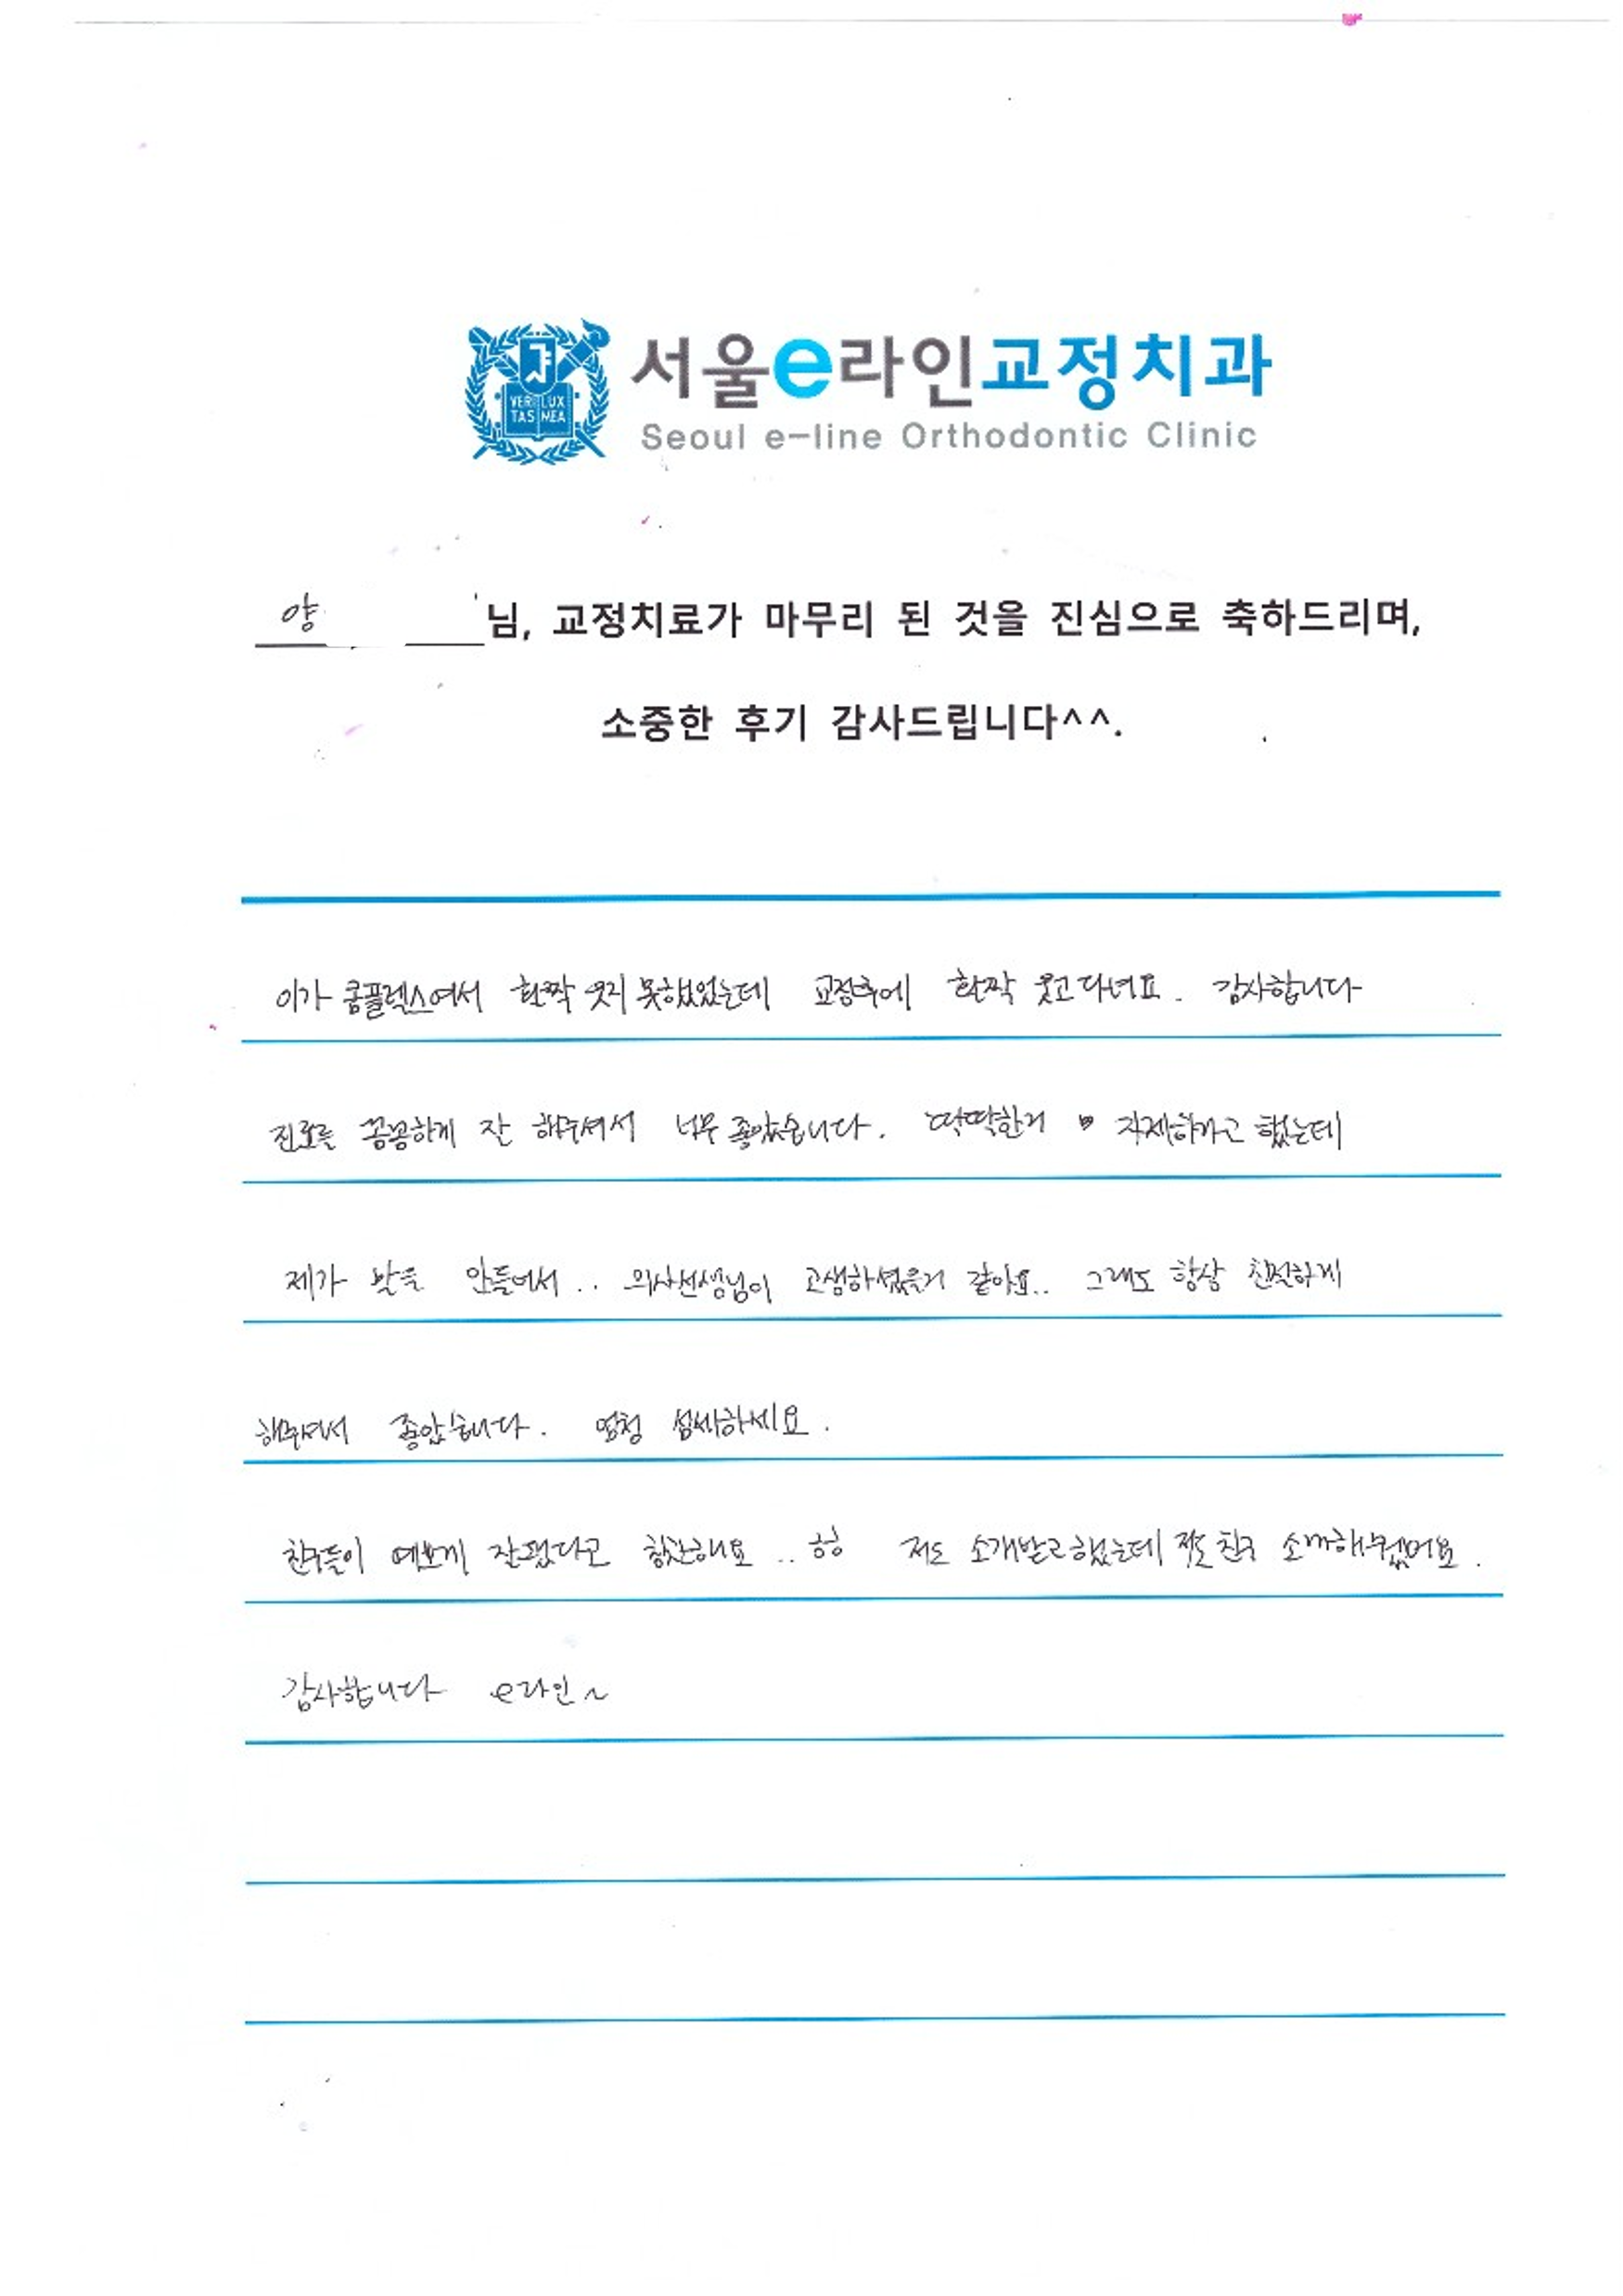 VERI LUX
TAS MEA
서울e라인교정치과
Seoul e-line Orthodontic Clinic
양 님, 교정치료가 마무리 된 것을 진심으로 축하드리며,
소중한 후기 감사드립니다^^.
이가 콤플렉스여서 활짝 웃지 못했었는데 교정후에 활짝 웃고다녀요. 감사합니다
진료를 꼼꼼하게 잘 해주셔서 너무 좋았습니다. 딱딱한거 자제하라고 했는데
제가 말을 안들어서.. 의사선생님이 고생하셨을거 같아요.. 그래도 항상 친절하게
해주셔서 좋았습니다. 엄청 섬세하세요.
친구들이 예쁘게 잘됐다고 칭찬해요.. 저도 소개받고했는데 친구 소개해줬어요.
감사합니다 e라인~